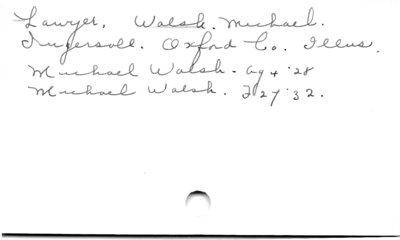 Lawyer, Walsh. Michael.
Ingersoll. Oxford Co. Illus.
Michael Walsh. Ag 4 '28
Michael Walsh. F 27 '32.